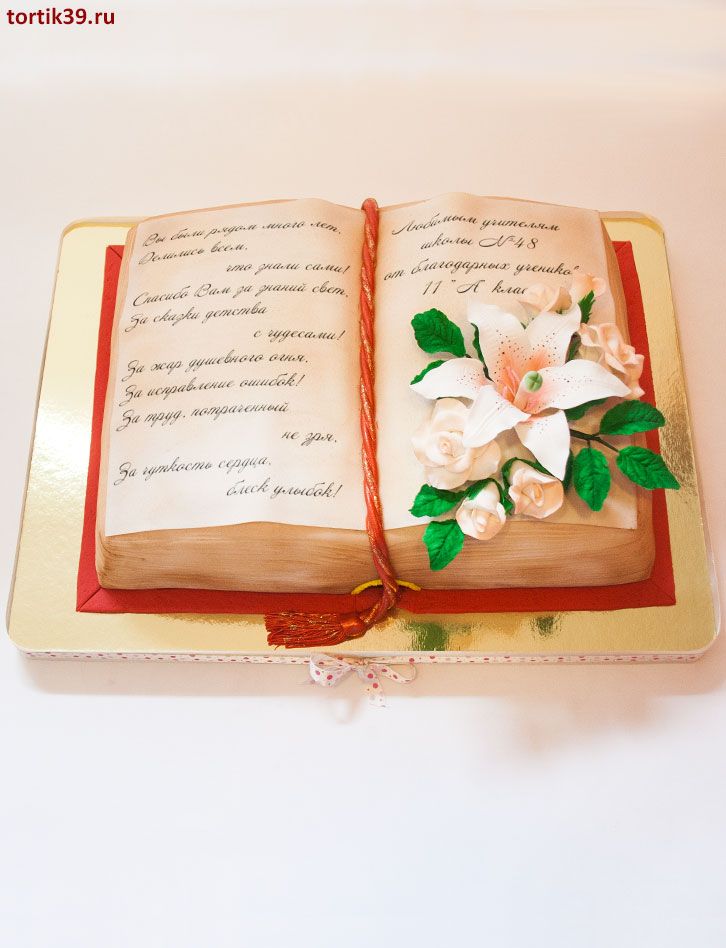 tortik39.ru
Вы были рядом много лет,
Делились всем,
что знали сами!
Спасибо Вам за знаний свет,
За сказки детства
с чудесами!
За жар душевного огня,
За исправление ошибок!
За труд, потраченный
не зря,
За чуткость сердца,
блеск улыбок!
Любимым учителям
школы №48
от благодарных ученико
11 "А" клас